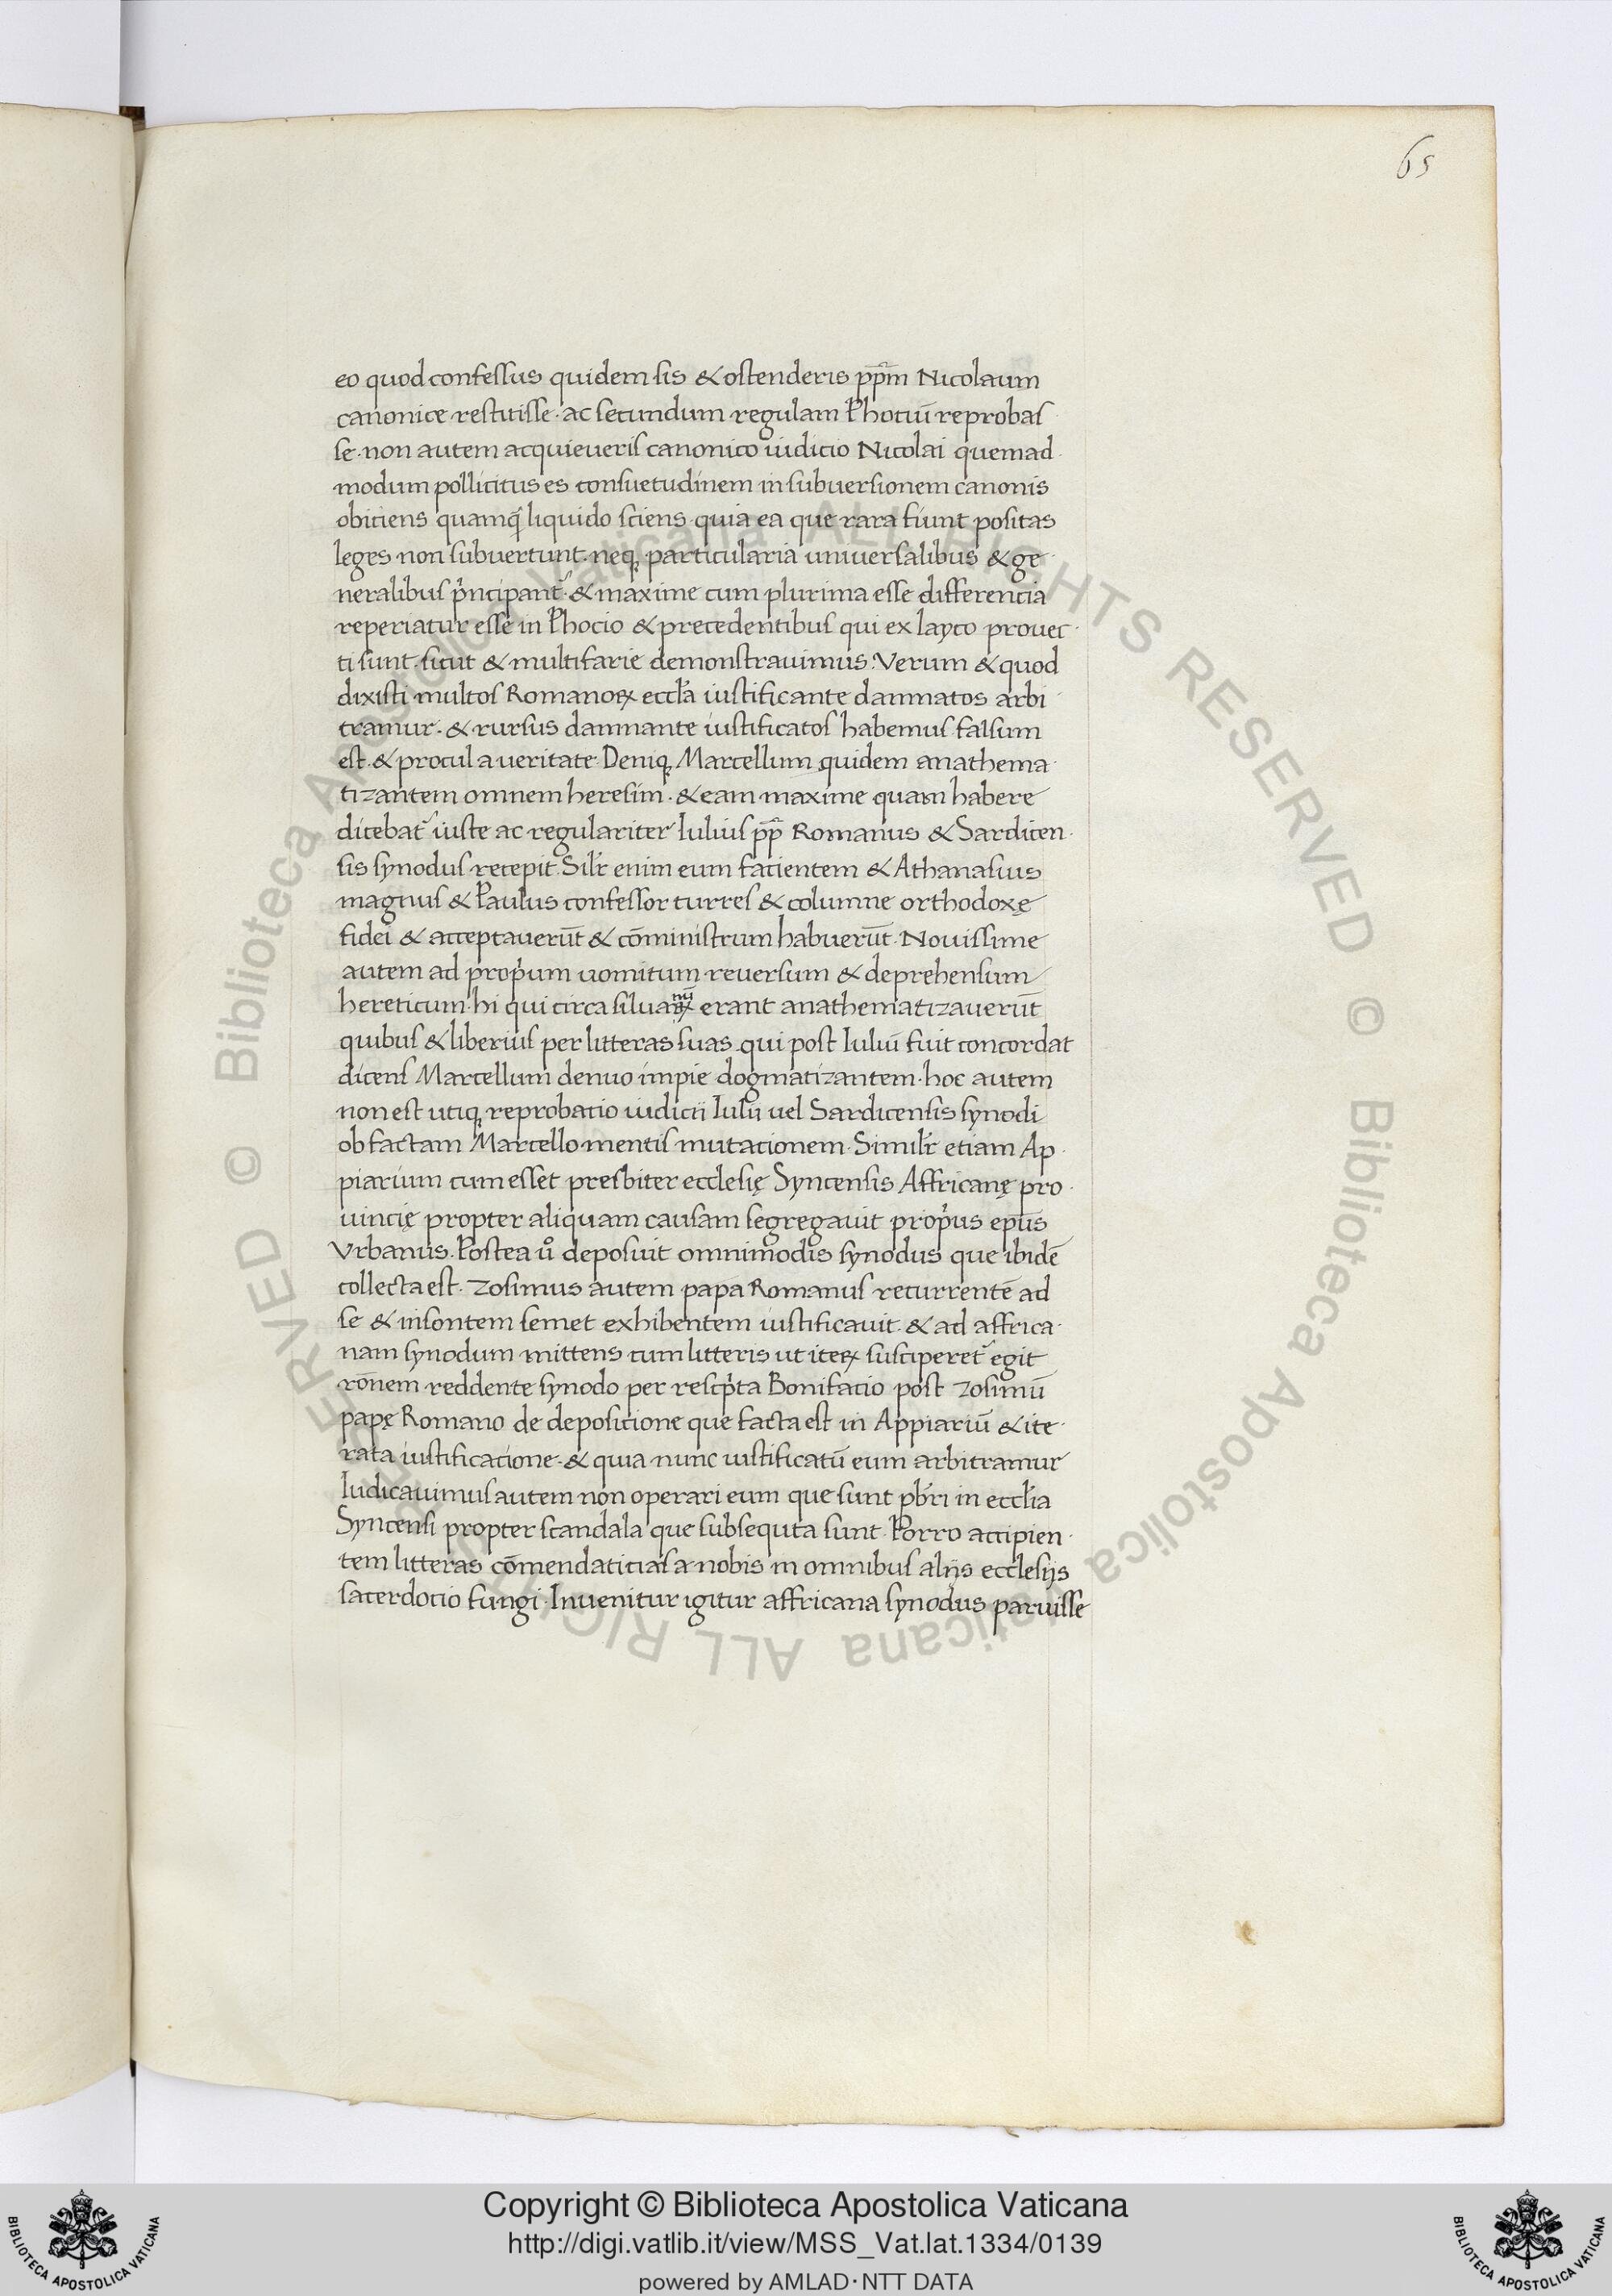 65
eo quod confessus quidem sis & ostenderis pp̄m Nicolaum
canonice restitisse · ac secundum regulam Photiū reprobas
se · non autem acquieueris canonico iudicio Nicolai quemad
modum pollicitus es consuetudinem in subuersionem canonis
obiciens quamq̄ liquido sciens quia ea que rara fiunt positas
leges non subuertunt · neq; particularia uniuersalibus & ge
neralibus p̄ncipant᷑ · & maxime cum plurima esse differencia
reperiatur esse in Phocio & precedentibus qui ex layco prouec
ti sunt · sicut & multifarie demonstrauimus : Verum & quod
dixisti multos Romanoꝝ eccl̄a iustificante damnatos arbi
tramur · & rursus damnante iustificatos habemus falsum
est · & procul a ueritate · Deniq; Marcellum quidem anathema
tizantem omnem heresim · & eam maxime quam habere
dicebat᷑ iuste ac regulariter Iulius pp̄ Romanus & Sardicen
sis synodus recepit · Silr̄ enim eum facientem & Athanasius
magnus & Paulus confessor turres & columne orthodoxę
fidei & acceptauerūt & cōministrum habuerūt · Nouissime
autem ad prop̄um uomitum reuersum & deprehensum
hereticum · hi qui circa siluanū erant anathematizauerūt
quibus & liberius per litteras suas qui post Iuliū fuit concordat
dicens Marcellum denuo impie dogmatizantem · hoc autem
non est utiq; reprobatio iudicii Iulii uel Sardicensis synodi
ob factam Marcello mentis mutacionem · Similr̄ etiam Ap
piarium cum esset presbiter ecclesię Syncensis Affricanę pro
uincię propter aliquam causam segregauit prop̄us ep̄us
Vrbanus · Postea uo᷑ deposuit omnimodis synodus que ibidē
collecta est · Zosimus autem papa Romanus recurrentē ad
se & insontem semet exhibentem iustificauit · & ad affrica
nam synodum mittens cum litteris ut iteꝝ susciperet᷑ egit
rōnem reddente synodo per rescp̄ta Bonifacio post Zosimū
papę Romano de deposicione que facta est in Appiariū & ite
rata iustificacione · & quia nunc iustificatū eum arbitramur
Iudicauimus autem non operari eum que sunt pb̄ri in eccl̄ia
Syncensi propter scandala que subsequta sunt · Porro accipien
tem litteras cōmendaticias a nobis in omnibus alijs ecclesijs
sacerdocio fungi · Inuenitur igitur affricana synodus paruisse
© Biblioteca Apostolica Vaticana ALL RIGHTS RESERVED © Biblioteca Apostolica Vaticana ALL RIGHTS RESERVED
Copyright © Biblioteca Apostolica Vaticana
http://digi.vatlib.it/view/MSS_Vat.lat.1334/0139
powered by AMLAD·NTT DATA
BIBLIOTECA APOSTOLICA VATICANA
BIBLIOTECA APOSTOLICA VATICANA